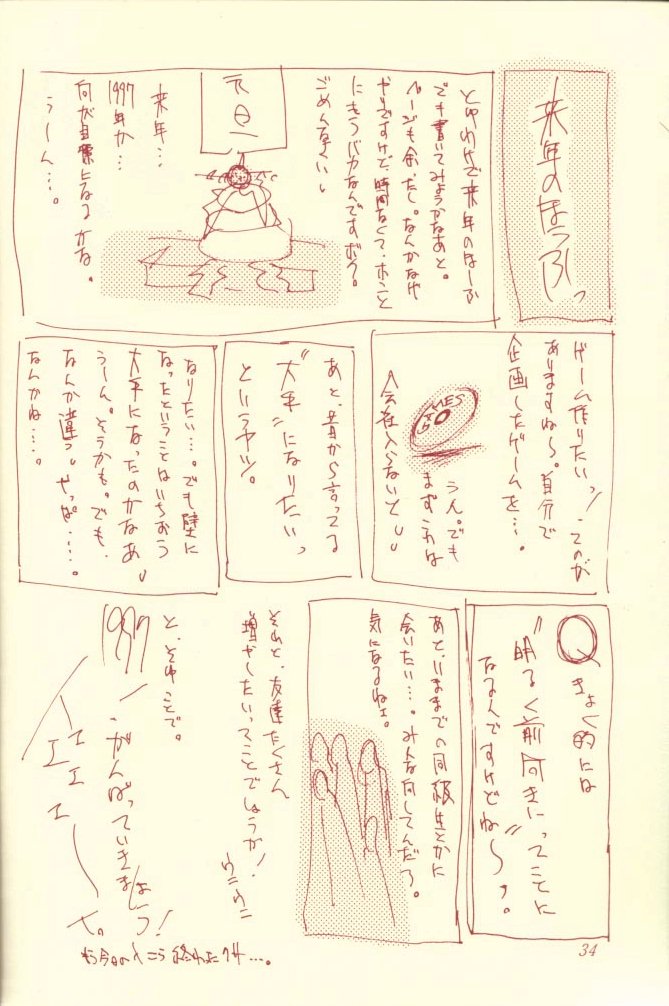 来年のほうふっ
とゆわけで来年のほーふ
でも書いてみようかなあと。
ページも余ったし。なんかなげ
やりですけど、時間なくて、ホンと
にもうバカなんですボク。
ごめんなさいし
元旦
来年…
1997年か…
何が目標になるかな。
うーん…。
ゲーム作りたいっ!てのが
ありますね〜。自分で
企画したゲームを…。
GAMES
うん。でも
まずこれは
会社入らないとしし
あと、昔から言ってる
"大手"になりたいっ
というヤツ。
なりたい…。でも壁に
なったということはいちおう
大手になったのかなあし
うーん。そうかも。でも、
なんか違う。やっぱ……。
なんかね…。
Qきょく的には
"明るく前向きに"ってことに
なるんですけどね〜っ。
あと、いままでの同級生とかに
会いたい…。みんな何してんだろ。
気になるねェ。
それと、友達たくさん
増やしたいってことでしょうか!
ウニウニ
と、そゆことで。
1997
がんばっていきましょう!
エエエ